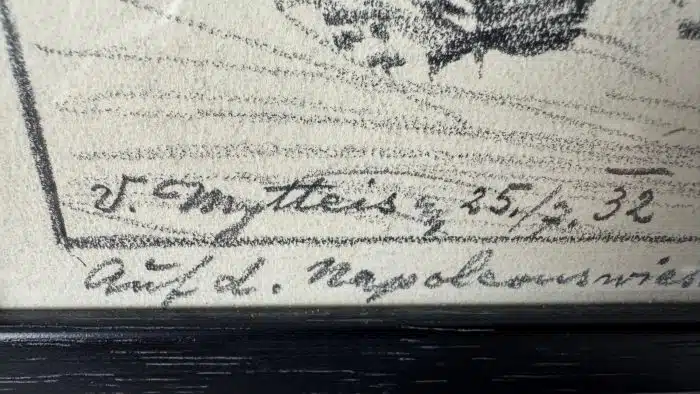 V. Mytteis 25./7. 32
Auf d. Napoleonswies